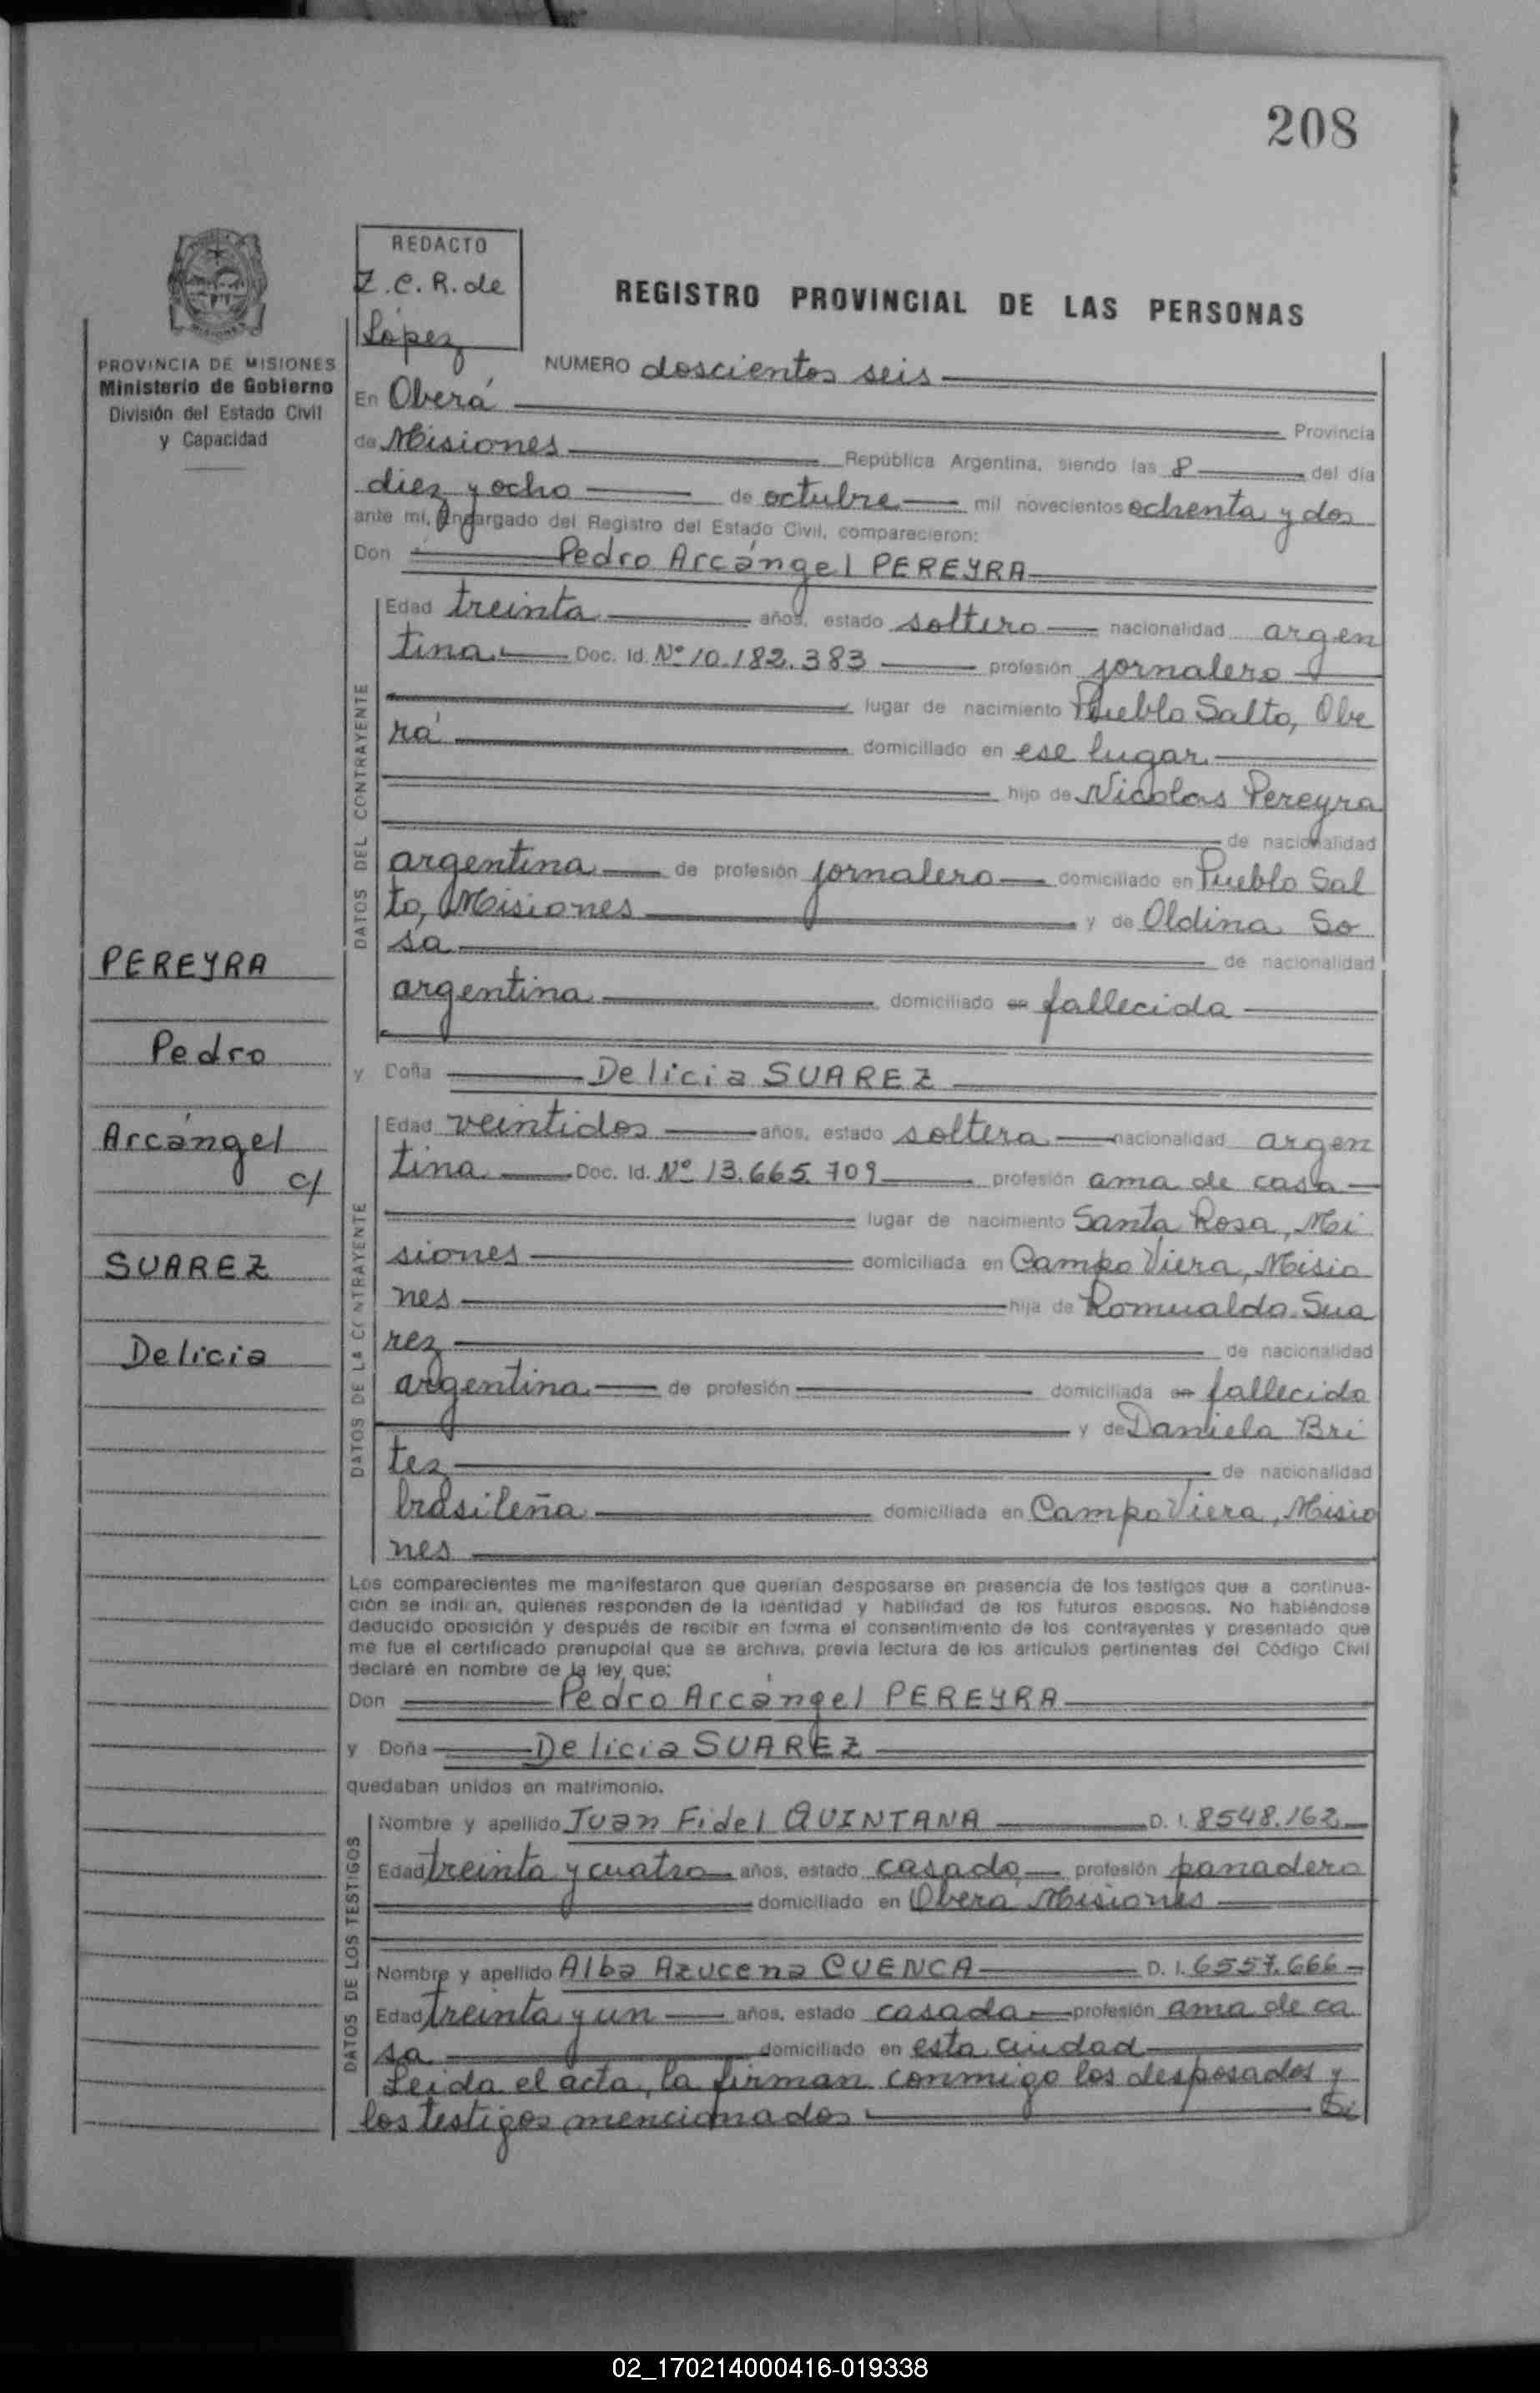 208
REDACTO
Z.C.R. de
López
REGISTRO PROVINCIAL DE LAS PERSONAS
PROVINCIA DE MISIONES
Ministerio de Gobierno
División del Estado Civil
y Capacidad
NUMERO doscientos seis
En Oberá
Provincia
de Misiones República Argentina, siendo las 8 del día
diez y ocho de octubre mil novecientos ochenta y dos
ante mí, Encargado del Registro del Estado Civil, comparecieron:
Don Pedro Arcángel PEREYRA
DATOS DEL CONTRAYENTE
Edad treinta años, estado soltero nacionalidad argen
tina Doc. Id. Nº 10.182.383 profesión jornalero
lugar de nacimiento Pueblo Salto, Obe
rá domiciliado en ese lugar
hijo de Nicolas Pereyra
de nacionalidad
argentina de profesión jornalero domiciliado en Pueblo Sal
to, Misiones y de Oldina So
sa de nacionalidad
argentina domiciliado en fallecida
y Doña Delicia SUAREZ
DATOS DE LA CONTRAYENTE
Edad veintidos años, estado soltera nacionalidad argen
tina Doc. Id. Nº 13.665.709 profesión ama de casa
lugar de nacimiento Santa Rosa, Mi
siones domiciliada en Campo Viera, Misio
nes hija de Romualdo Sua
rez de nacionalidad
argentina de profesión domiciliada en fallecido
y de Daniela Bri
tez de nacionalidad
brasileña domiciliada en Campo Viera, Misio
nes
PEREYRA
Pedro
Arcángel
c/
SUAREZ
Delicia
Los comparecientes me manifestaron que querían desposarse en presencia de los testigos que a continua-
ción se indican, quienes responden de la identidad y habilidad de los futuros esposos. No habiéndose
deducido oposición y después de recibir en forma el consentimiento de los contrayentes y presentado que
me fue el certificado prenupcial que se archiva, previa lectura de los artículos pertinentes del Código Civil
declaré en nombre de la ley que:
Don Pedro Arcángel PEREYRA
y Doña Delicia SUAREZ
quedaban unidos en matrimonio.
DATOS DE LOS TESTIGOS
Nombre y apellido Juan Fidel QUINTANA D. I. 8548.162
Edad treinta y cuatro años, estado casado profesión panadero
domiciliado en Oberá Misiones
Nombre y apellido Alba Azucena CUENCA D. I. 6557.666
Edad treinta y un años, estado casada profesión ama de ca
sa domiciliado en esta ciudad
Leida el acta, la firman conmigo los desposados y
los testigos mencionados
02_170214000416-019338